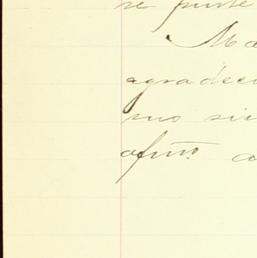 se puse
Ma
agradeci
mo sie
afmo. a